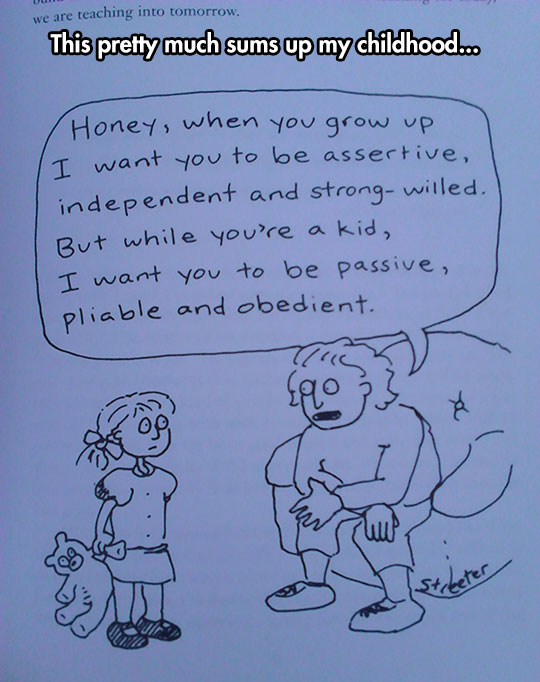 we are teaching into tomorrow.
This pretty much sums up my childhood...
Honey, when you grow up
I want you to be assertive,
independent and strong-willed.
But while you're a kid,
I want you to be passive,
pliable and obedient.
Streeter